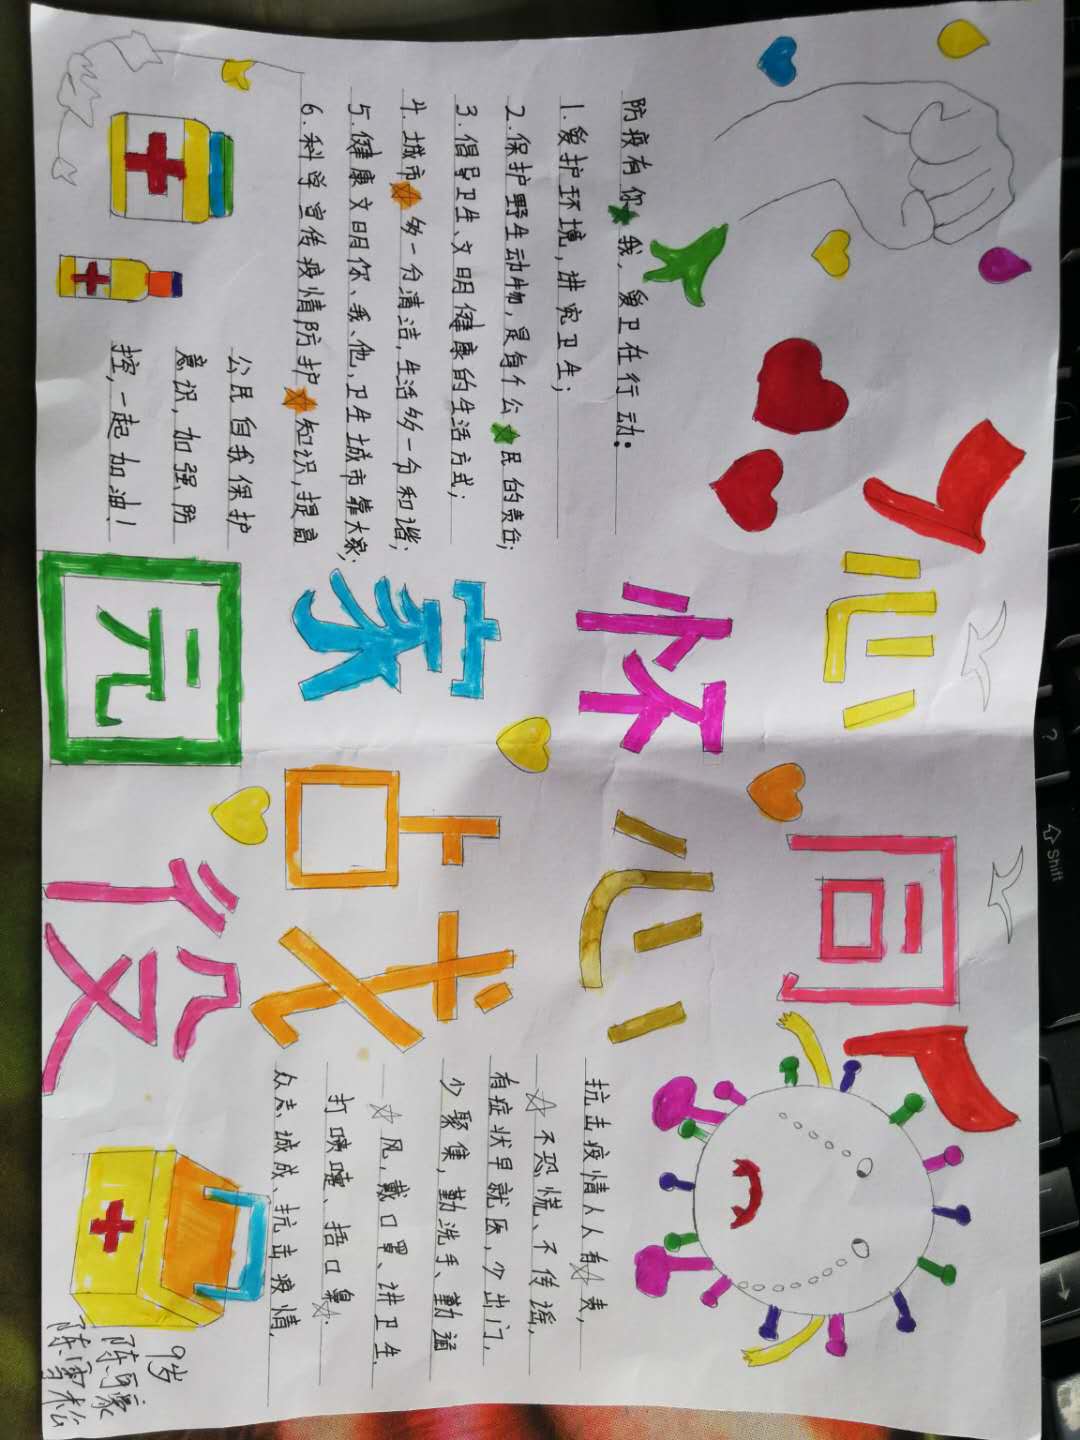 防疫有你★我，爱卫在行动：
1.爱护环境，讲究卫生；
2.保护野生动物，是每个公★民的责任；
3.倡导卫生、文明健康的生活方式；
4.城市★多一分清洁，生活多一分和谐；
5.健康文明你、我、他，卫生城市靠大家；
6.科学宣传疫情防护★知识，提高
公民自我保护
意识，加强防
控，一起加油！
心怀家园
同心战疫
抗击疫情人人有☆责，
☆不恐慌、不传谣，
有症状早就医，少出门，
少聚集，勤洗手、勤通
☆风，戴口罩、讲卫生，
打喷嚏、捂口鼻☆.
众志城成、抗击疫情.
9岁
陈雪松
Shift
?